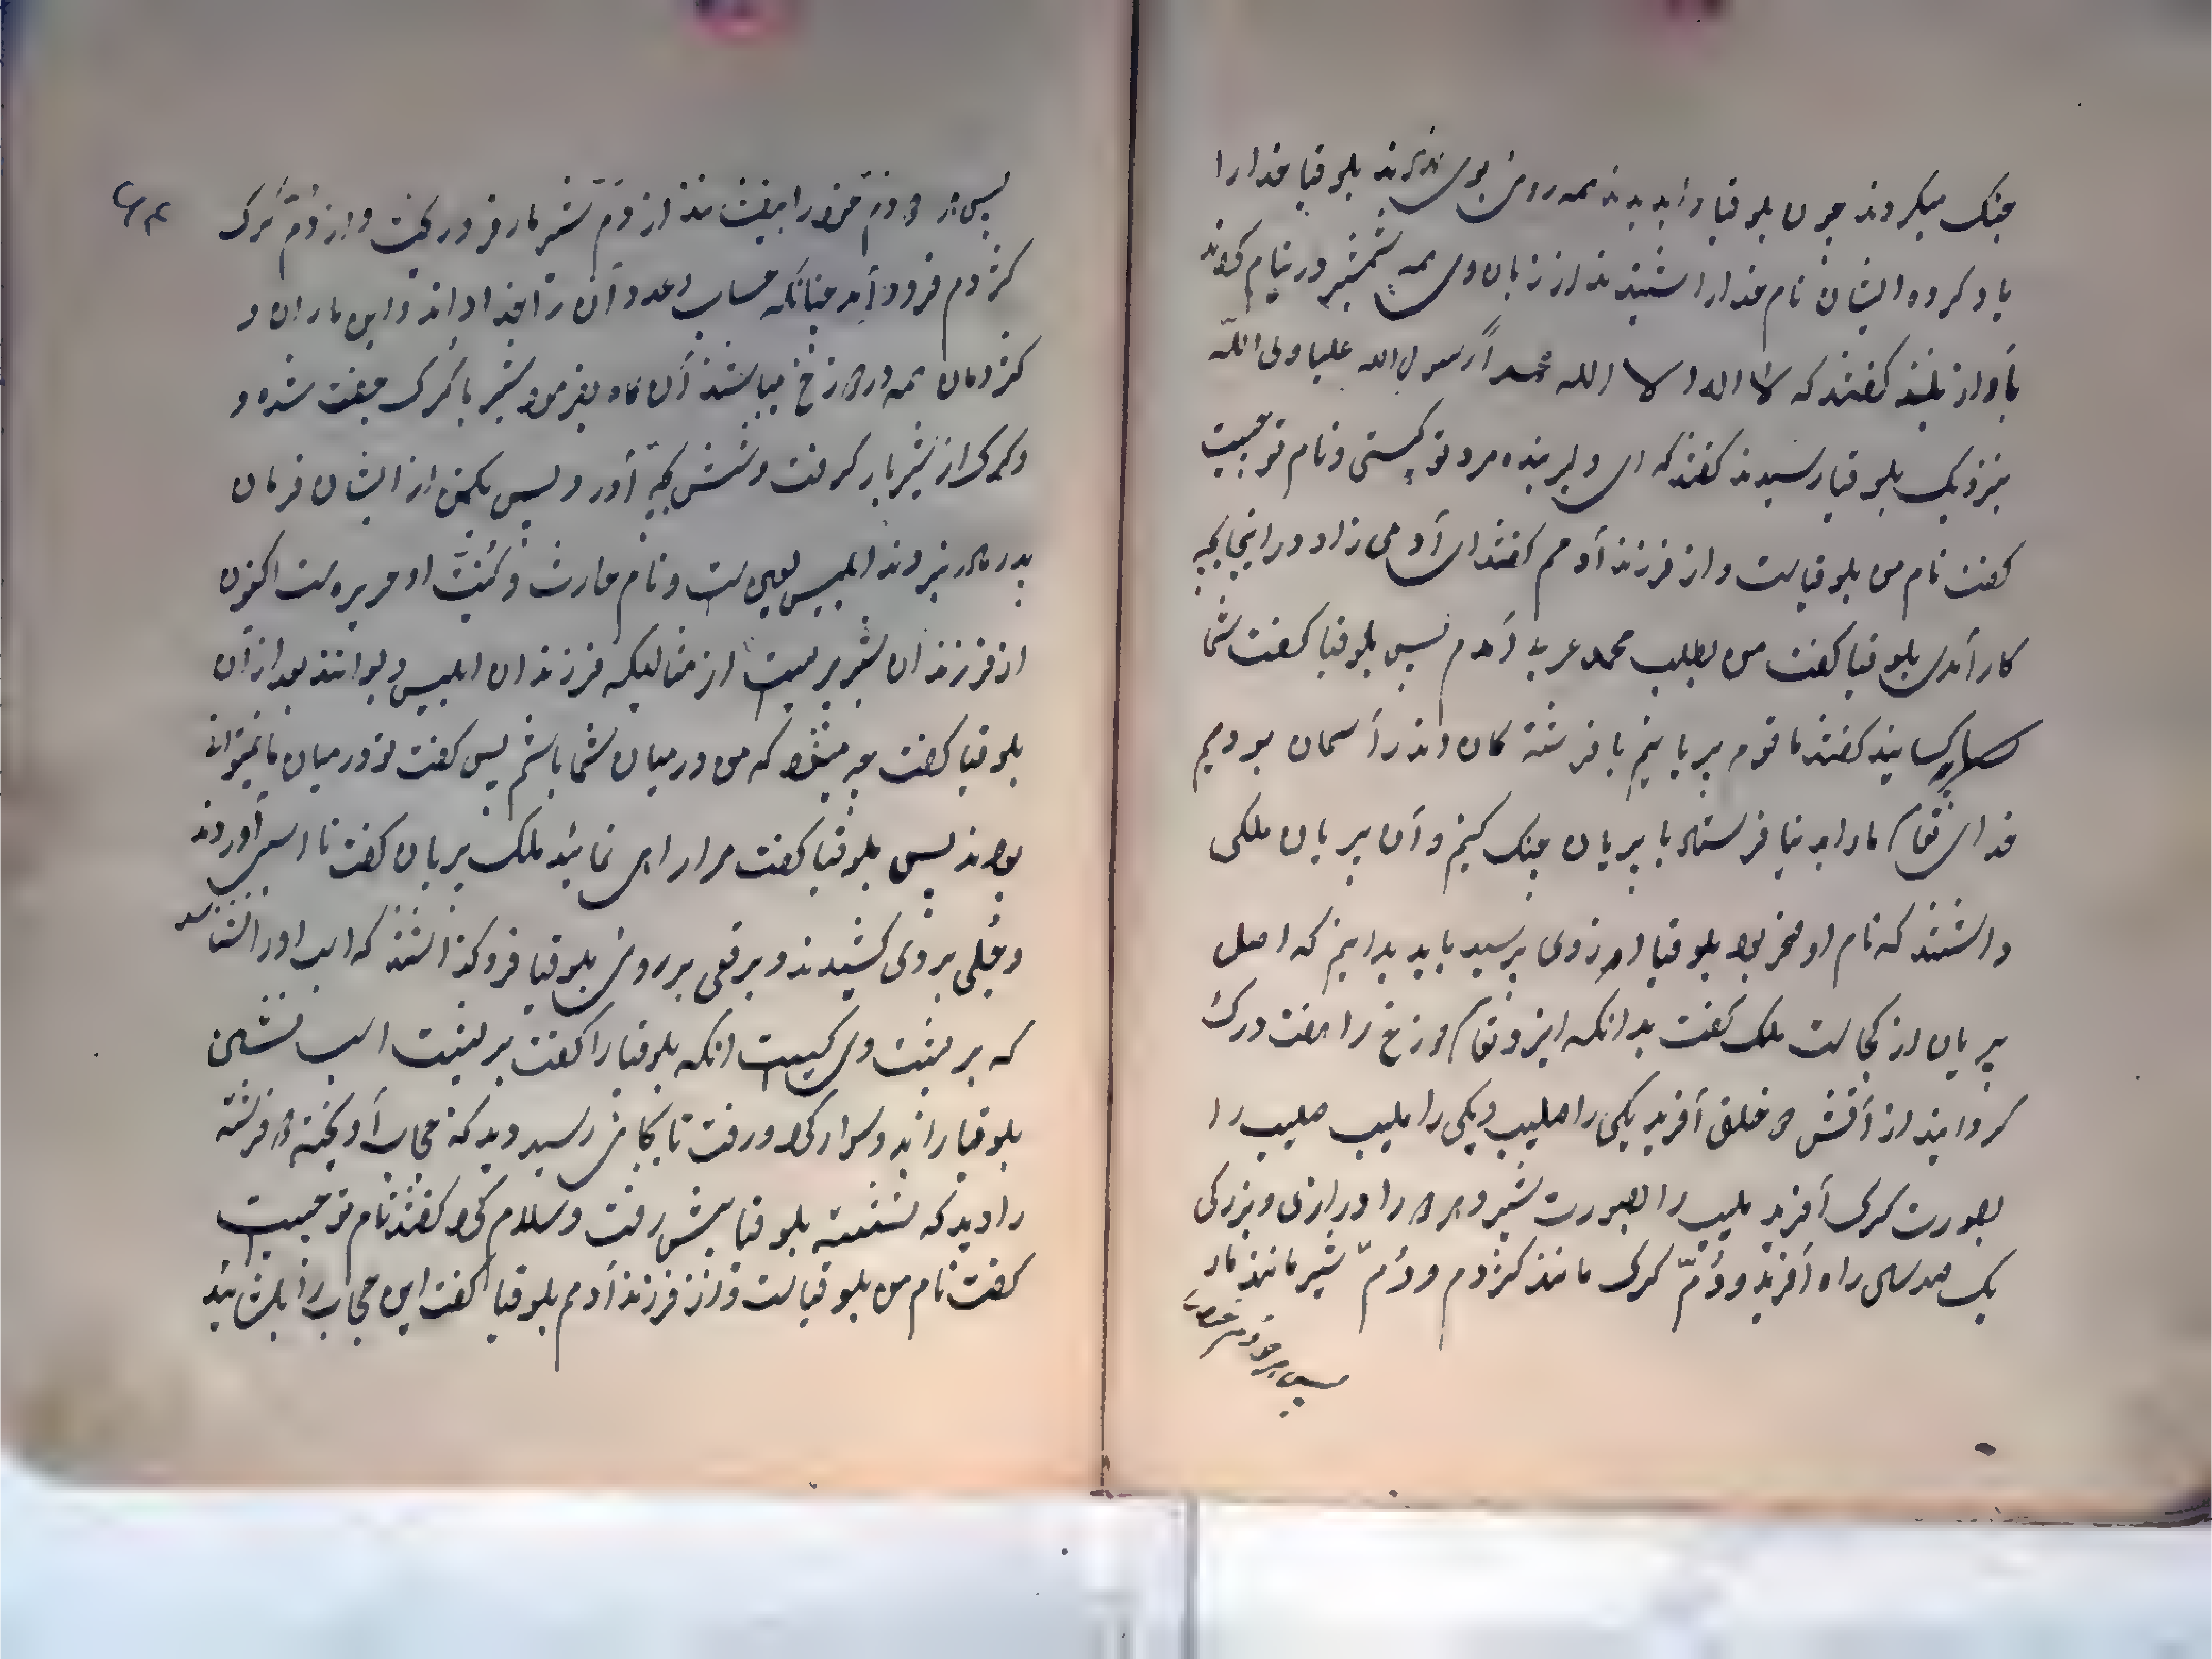 جنک میکردند چون بلوقیا را بدیدند همه روی بوی نهادند بلوقیا خدارا
یاد کرد ایشان نام خدارا شنیدند از زبان وی همه شمشیر در نیام کردند
بآواز بلند کفتند که لا اله الا الله محمداً رسول الله علیا ولی الله
بنزدیک بلوقیا رسیدند کفتند که ای دلیر بنده مرد تو کیستی و نام تو چیست
کفت نام من بلوقیاست و از فرزند آدمم کفتند ای آدمی زاد در اینجا بچه
کار آمدی بلوقیا کفت من بطلب محمد عربی آمدم پس بلوقیا کفت شما
کیسانید کفتند ما قوم پریانیم با فرشته کان اندر آسمان بودیم
خدای تعا ما را بدنیا فرستاد با پریان جنک کنیم و آن پریان ملکی
داشتند که نام او صخر بود بلوقیا از وی پرسید باید بدانیم که اصل
پریان از کجاست ملک کفت بدانکه ایزد تعا دوزخ را هفت درک
کردانید از آتش دو خلق آفرید یکی را صلیب و یکی را ملیب صلیب را
بصورت کرک آفرید ملیب را بصورت شیر و هر دو را درازی و بزرکی
یک صد سی راه آفرید و دُمّ کرک مانند کژدم و دُمّ شیر مانند مار
پس هر دو دم خود را
پس هر دو دم خود را بیفشاندند از دم شیر مار فرو ریخت و از دُم کرک
کژدم فرود آمد چنانکه حساب و عدد آن را خدا داند و این ماران و
کژدمان همه در دوزخ میباشند آن کاه بفرمود شیر با کرک جفت شد و
و کرک از شیر بار کرفت و شش بچه آورد پس یکی از ایشان فرمان
بدر نبردند ابلیس لعین است و نام حارث و کنیت او مریره است اکنون
از فرزندان شریر نیست از متالیکه فرزندان ابلیس دیوانند بعد از آن
بلوقیا کفت چه میشود که من در میان شما باشم پس کفت تو در میان ما نمیتوانی
بود پس بلوقیا کفت مرا راهی نمائید ملک پریان کفت تا اسبی آوردند
و جلی بروی کشیدند و برقعی بر روی بلوقیا فروکذاشتند که اسب او را نشناسد
که بر پشت وی کیست انکه بلوقیا را کفت بر پشت اسب نشین
بلوقیا را ند و سوار کرد و رفت تا بجائی رسید دید که حجاب آویخته دو فرشته
را دید که نشسته بلوقیا پیش رفت و سلام کرد کفتند نام تو چیست
کفت نام من بلوقیاست و از فرزند آدمم بلوقیا کفت این حجاب را بکشائید